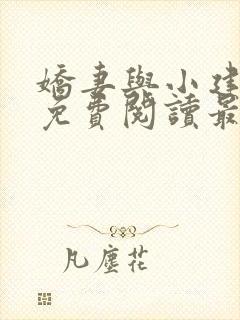 嬌妻與小建
免費閱讀最
凡塵花